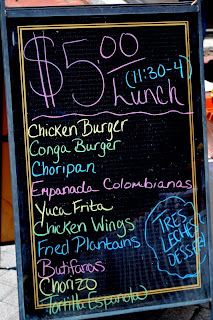 $5.00
(11:30-4)
Lunch
Chicken Burger
Conga Burger
Choripan
Empanada Colombianas
Yuca Frita
Chicken Wings
Fried Plantains
Butifaras
Chorizo
Tortilla Española
TRES
LECHES
DESSERT